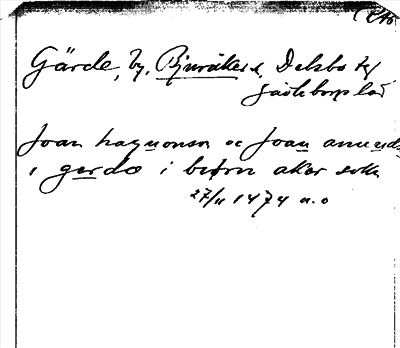 Gärde, by, Bjuråkers, Delsbo tg
Gävleborgs län
Joan haguonson oc Joan amunds
i gerdæ i biørn aker sokn
27/11 1474 n.o